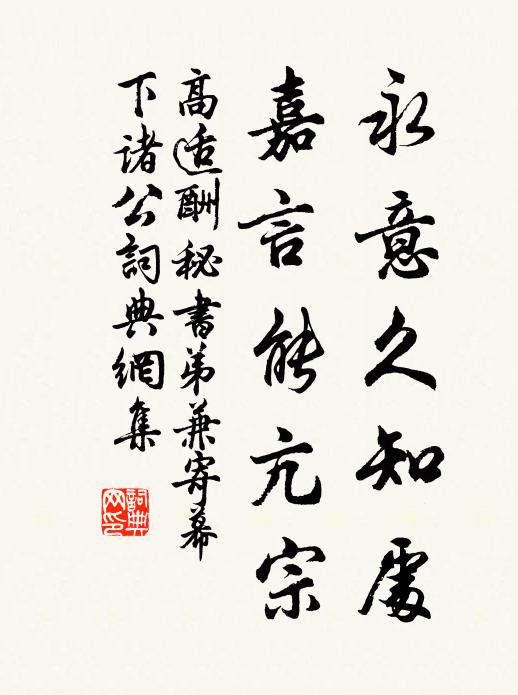 永意久知處
嘉言能亢宗
高适酬秘書弟兼寄幕
下诸公詞典網集
詞典
网印